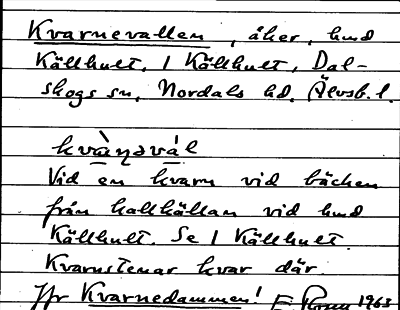 Kvarnevallen, åker, hmd
Källhult, 1 Källhult, Dal-
skogs sn, Nordals hd, Älvsb. l.
kvà̱ŋəvá̱l
Vid en kvarn vid bäcken
från kallkällan vid hmd
Källhult. Se 1 Källhult.
Kvarnstenar kvar där.
Jfr Kvarnedammen! E. 1963